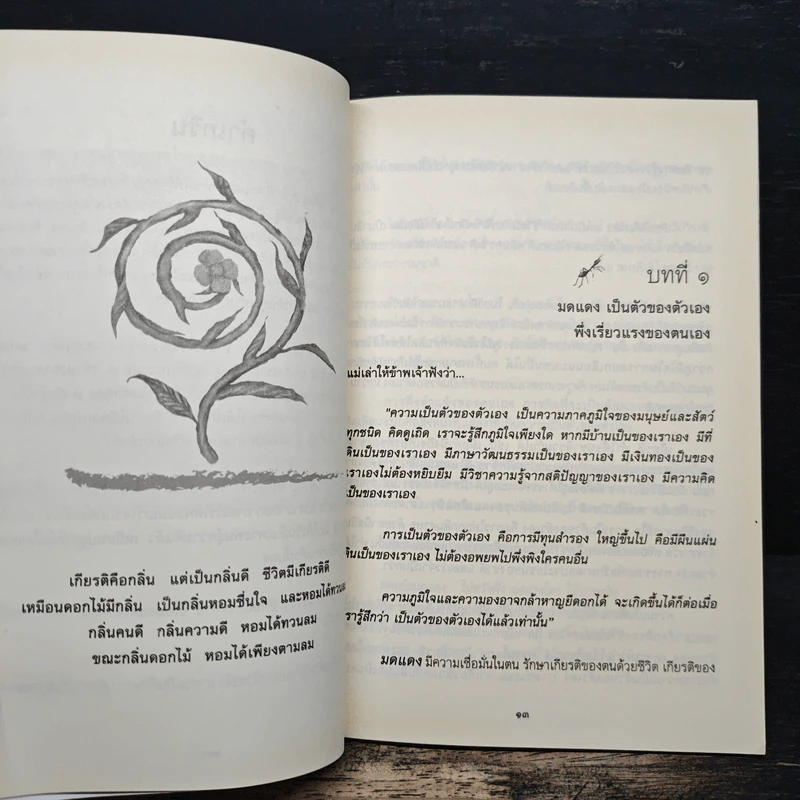 เกียรติคือกลิ่น แต่เป็นกลิ่นดี ชีวิตมีเกียรติดี
เหมือนดอกไม้มีกลิ่น เป็นกลิ่นหอมชื่นใจ และหอมได้ทวนลม
กลิ่นคนดี กลิ่นความดี หอมได้ทวนลม
ขณะกลิ่นดอกไม้ หอมได้เพียงตามลม
บทที่ ๑
มดแดง เป็นตัวของตัวเอง
พึ่งเรี่ยวแรงของตนเอง
แม่เล่าให้ข้าพเจ้าฟังว่า...
"ความเป็นตัวของตัวเอง เป็นความภาคภูมิใจของมนุษย์และสัตว์
ทุกชนิด คิดดูเถิด เราจะรู้สึกภูมิใจเพียงใด หากมีบ้านเป็นของเราเอง มีที่
ดินเป็นของเราเอง มีภาษาวัฒนธรรมเป็นของเราเอง มีเงินทองเป็นของ
เราเองไม่ต้องหยิบยืม มีวิชาความรู้จากสติปัญญาของเราเอง มีความคิด
เป็นของเราเอง
การเป็นตัวของตัวเอง คือการมีทุนสำรอง ใหญ่ขึ้นไป คือมีผืนแผ่น
ดินเป็นของเราเอง ไม่ต้องอพยพไปพึ่งพิงใครคนอื่น
ความภูมิใจและความองอาจกล้าหาญยืดอกได้ จะเกิดขึ้นได้ก็ต่อเมื่อ
เรารู้สึกว่า เป็นตัวของตัวเองได้แล้วเท่านั้น"
มดแดง มีความเชื่อมั่นในตน รักษาเกียรติของตนด้วยชีวิต เกียรติของ
๑๓